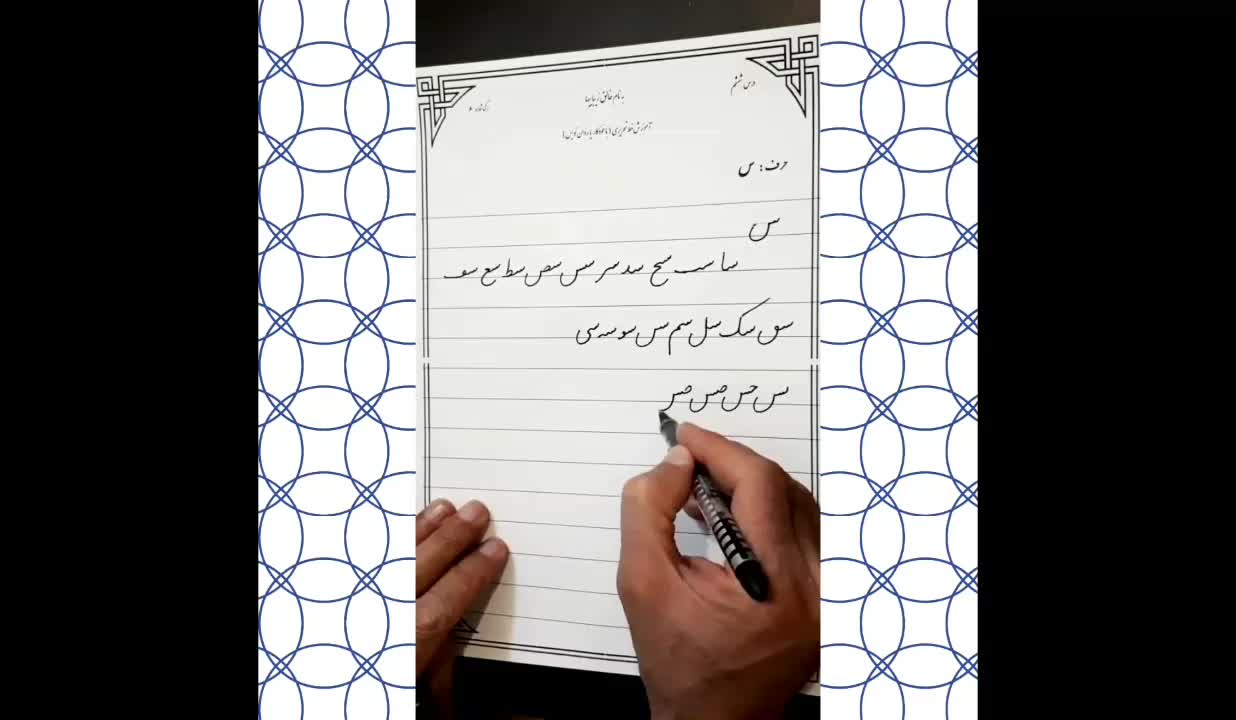 درس ششم
به نام خالق زیباییها
آموزش خط تحریری (با خودکار یا روان نویس)
حرف: س
س
سا سب سح سد سر سس سص سط سع سف
سق سک سل سم سن سو سه سی